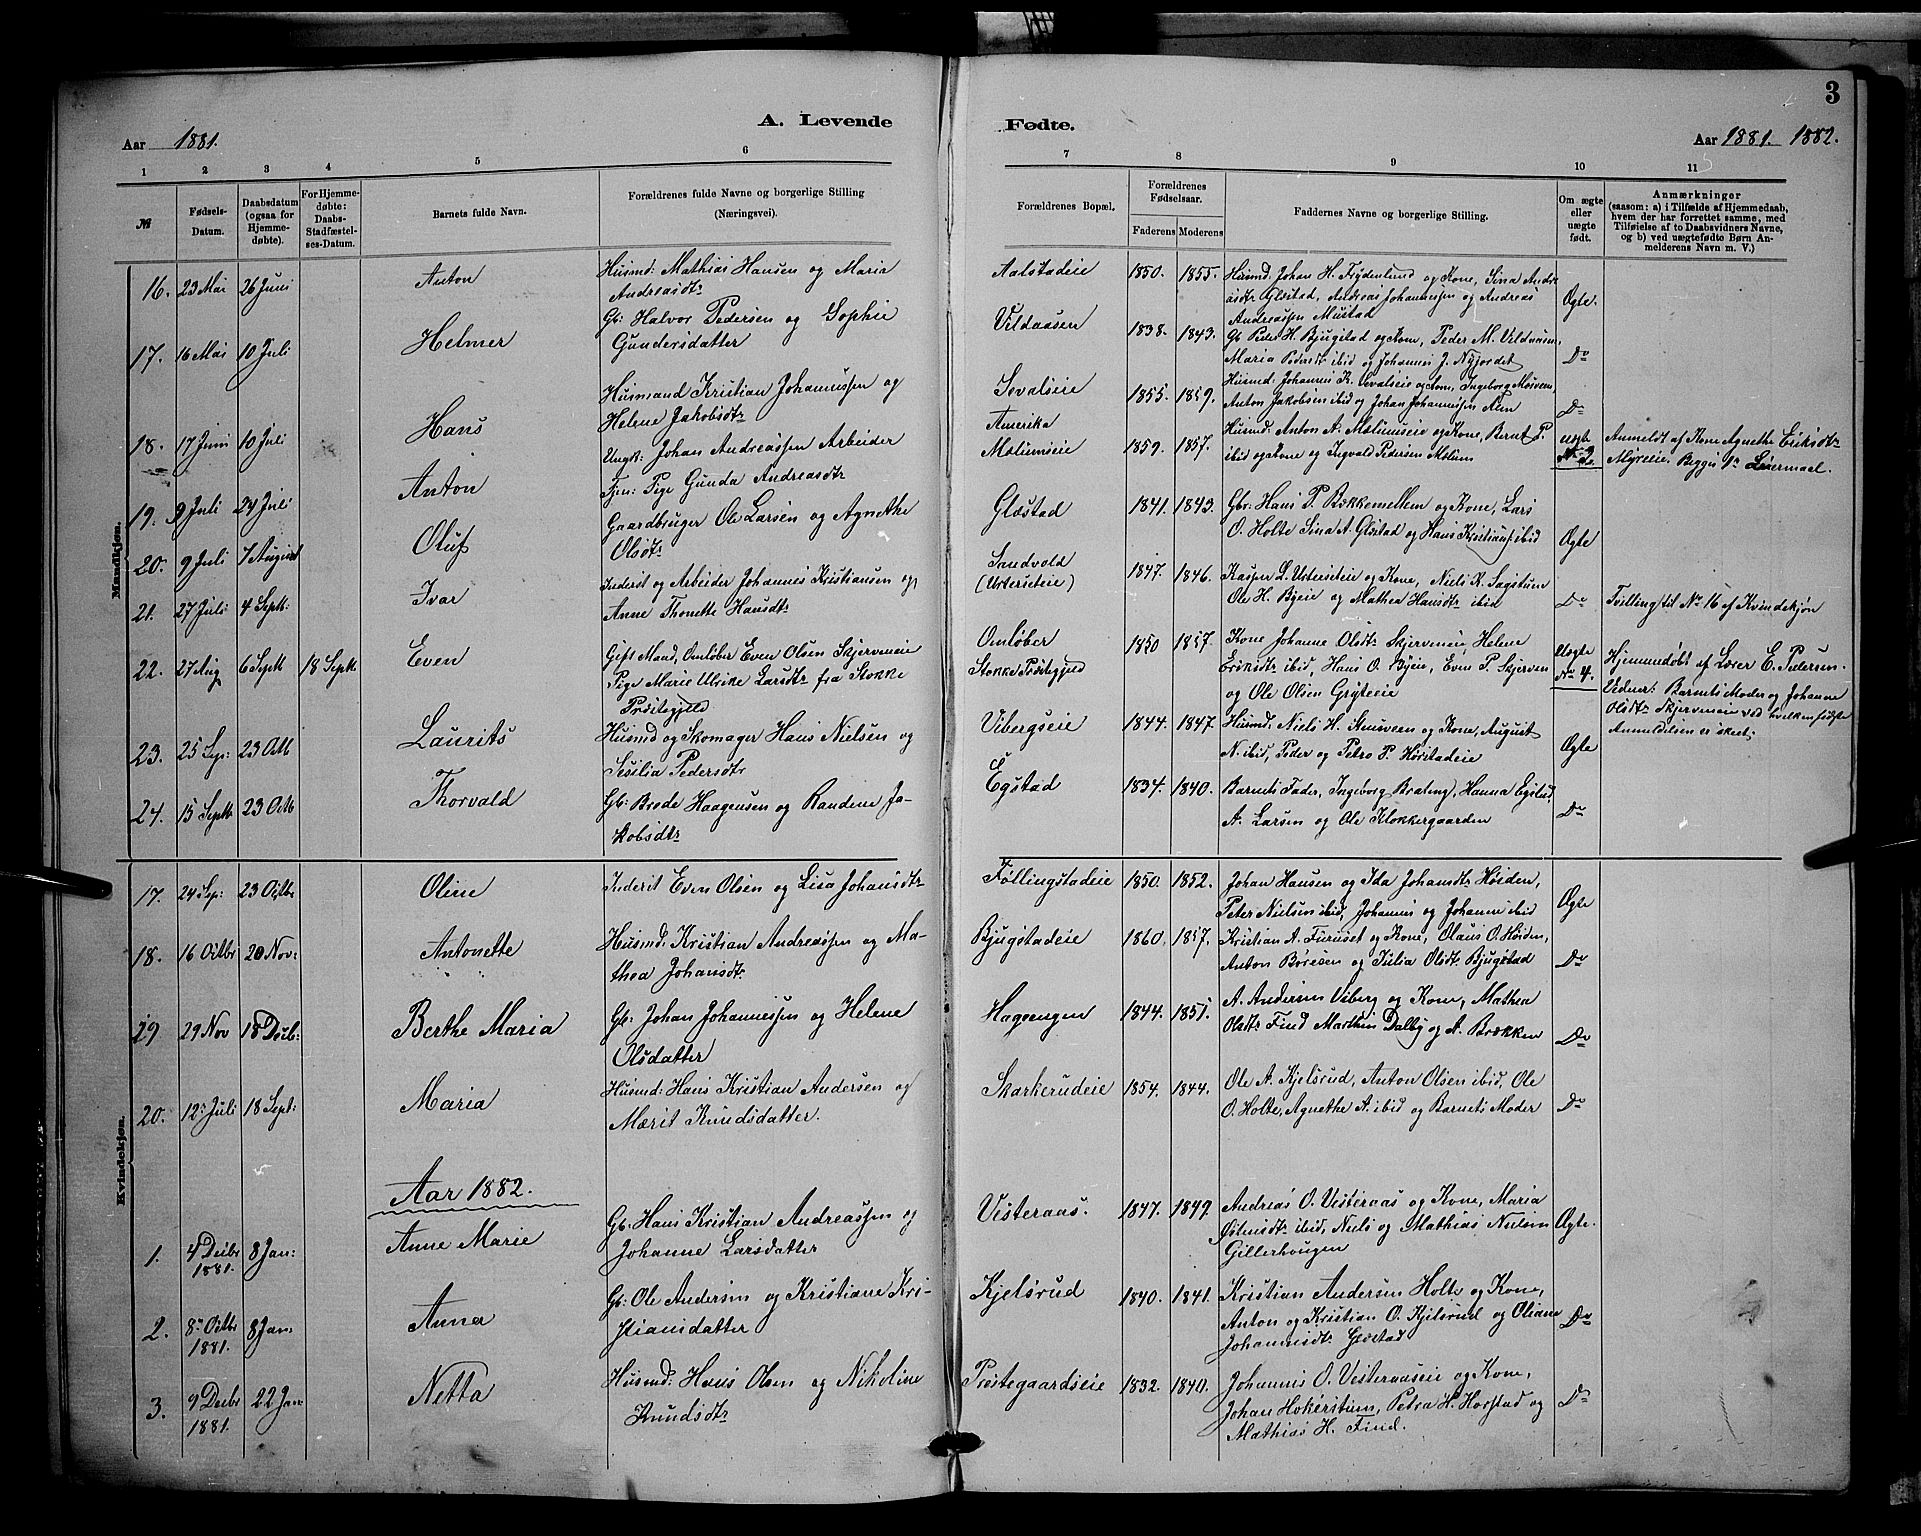 3
A. Levende
Fødte.
Aar 1881.
Aar 1881. 1882.
1 2 3 4 5 6
7 8 9 10 11
№
Fødsels-
Datum.
Daabsdatum
(ogsaa for
Hjemme-
døbte).
For Hjemme-
døbte:
Daabs-
Stadfæstel-
ses-Datum.
Barnets fulde Navn.
Forældrenes fulde Navne og borgerlige Stilling
(Næringsvei).
Forældrenes Bopæl.
Forældrenes
Fødselsaar.
Faderens Moderens
Faddernes Navne og borgerlige Stilling.
Om ægte
eller
uægte
født.
Anmærkninger
(saasom: a) i Tilfælde af Hjemmedaab,
hvem der har forrettet samme, med
Tilføielse af to Daabsvidners Navne,
og b) ved uægtefødte Børn An-
melderens Navn m. V.)
Mandkjøn.
16. 23 Mai 26 Juni Anton
Husmd: Mathias Hansen og Maria
Andreasdtr
Aalstadeie 1850. 1855.
Husmd: Johan H. Frydenlund og Kone, Sina Andre
asdtr Glæstad, Andreas Johannessen og Andreas
Andreassen Mustad
Ægte.
17. 16 Mai 10 Juli Helmer
Gb: Halvor Pedersen og Sophie
Gundersdatter
Vildaasen 1838. 1843.
Gb Peder H. Bjugstad og Kone, Peder M. Vildaasen,
Maria Pedersdt ibid og Johannes J. Nyjordet
Do
18. 17 Juni 10 Juli Hans
Husmand Kristian Johannessen og
Helene Jakobsdtr
Sevalseie 1855. 1859.
Husmd: Johannes K. Sevalseie og Kone, Ingeborg Moisven,
Anton Jakobsen ibid og Johan Johannessen
Do
19. 9 Juli 24 Juli Anton
Ungk: Johan Andreassen Arbeider
Tjen: Pige Gunda Andreasdtr
Amerika
Mælumseie 1859. 1857.
Husmd: Anton A. Mælumseie og Kone, Bernt P.
ibid og Kone og Ingvald Pedersen Mælum
uægte
No 3.
Anmeldt af Kone Agnethe Eriksdtr
Myreeie. Begges 1ste Leiermaal.
20. 9 Juli 7 August Oluf
Gaardbruger Ole Larsen og Agnethe
Olsdtr
Glæstad 1841. 1843.
Gbr: Hans P. Bækkemellem og Kone, Lars
O. Holte Sina A. Glæstad og Hans Kristians. ibid
Ægte
21. 27 Juli 4 Septb: Ivar
Inderst og Arbeider Johannes Kristiansen og
Anne Thonette Hansdtr
Sandvold
(Urterseie) 1847. 1846.
Kasper L. Urterseie og Kone, Niels K. Sagstuen
Ole H. Byeie og Mathea Hansdtr ibid
Do
Tvilling til No 16 af Kvindekjøn
22. 27 Aug 6 Septb 18 Septb Even
Gift Mand, Omløber Even Olsen Skjerveneie
Pige Marie Ulrike Larsdtr fra Stokke
Præstegjeld
Omløber
Stokke Præstegjeld 1850 1857.
Kone Johanne Olsdtr Skjerveneie, Helene
Eriksdtr ibid, Hans O. Byeie, Even P. Skjerven
og Ole Olsen Gryteeie
Uægte
No 4.
Hjemmedøbt af Lærer E. Pedersen
Vidner: Barnets Moder og Johanne
Olsdtr Skjerveneie ved hvilken sidste
Anmeldelsen er skeet.
23. 25 Sep: 23 Octb Laurits
Husmd og Skomager Hans Nielsen og
Sesilia Pedersdtr
Vibergseie 1844. 1847.
Husmd: Niels H. Stenveen og Kone, August
N. ibid, Peder og Petro P. Hørstadeie
Ægte
24. 15 Septb 23 Octb Thorvald
Gb: Brede Haagensen og Randene Ja-
kobsdtr
Egstad 1834. 1840.
Barnets Fader, Ingeborg Breteng, Hanna Egstad,
A. Larsen og Ole Klokkergaarden
Do
Kvindekjøn.
17. 24 Sep: 23 Octbr Oline
Inderst Even Olsen og Lisa Johansdtr
Føllingstadeie 1850. 1852.
Johan Hansen og Ida Johansdtr Høiden,
Peter Nielsen ibid, Johannes og Johanne ibid
Ægte
18. 16 Octbr 20 Nov: Antonette
Husmd: Kristian Andreassen og Ma-
thea Johansdtr
Bjugstadeie 1860. 1857.
Kristian A. Furuset og Kone, Olaus O. Høiden,
Anton Børesen og Julia Olsdtr Bjugstad
Do
19 29 Nov 18 Decb: Berthe Maria
Gb: Johan Johannessen og Helene
Olsdatter
Hageengen 1844. 1851.
A. Andersen Viberg og Kone, Mathea
Olsdtr Find Marthin Dalby og A. Brækken
Do
20. 12 Juli 18 Sept: Maria
Husmd: Hans Kristian Andersen og
Marit Knudsdatter.
Skarkerudeie 1854. 1844.
Ole A. Kjelsrud, Anton Olsen ibid, Ole
O. Holte, Agnethe A. ibid og Barnets Moder
Do
Aar 1882.
1. 4 Decbr 1881. 8 Jan: Anne Marie
Gb: Hans Kristian Andreassen og
Johanne Larsdatter
Vesteraas. 1847. 1849.
Andreas O. Vesteraas og Kone, Maria
Østensdtr ibid, Niels og Mathias Nielsen
Gillerhaugen
Ægte.
2. 8 Octbr 1881. 8 Jan: Anna
Gb: Ole Andersen og Kristiane Kri-
stiansdatter
Kjelsrud 1840. 1841.
Kristian Andersen Holte og Kone,
Anton og Kristian O. Kjelsrud og Oliane
Johannesdtr Glæstad
Do
3. 9 Decbr 1881. 22 Jan: Netta
Husmd: Hans Olsen og Nikoline
Knudsdtr
Præstegaardseie 1832. 1840.
Johannes O. Vesteraaseie og Kone,
Johan Hokerstuen, Petra H. Horstad og
Mathias H. Find.
Do